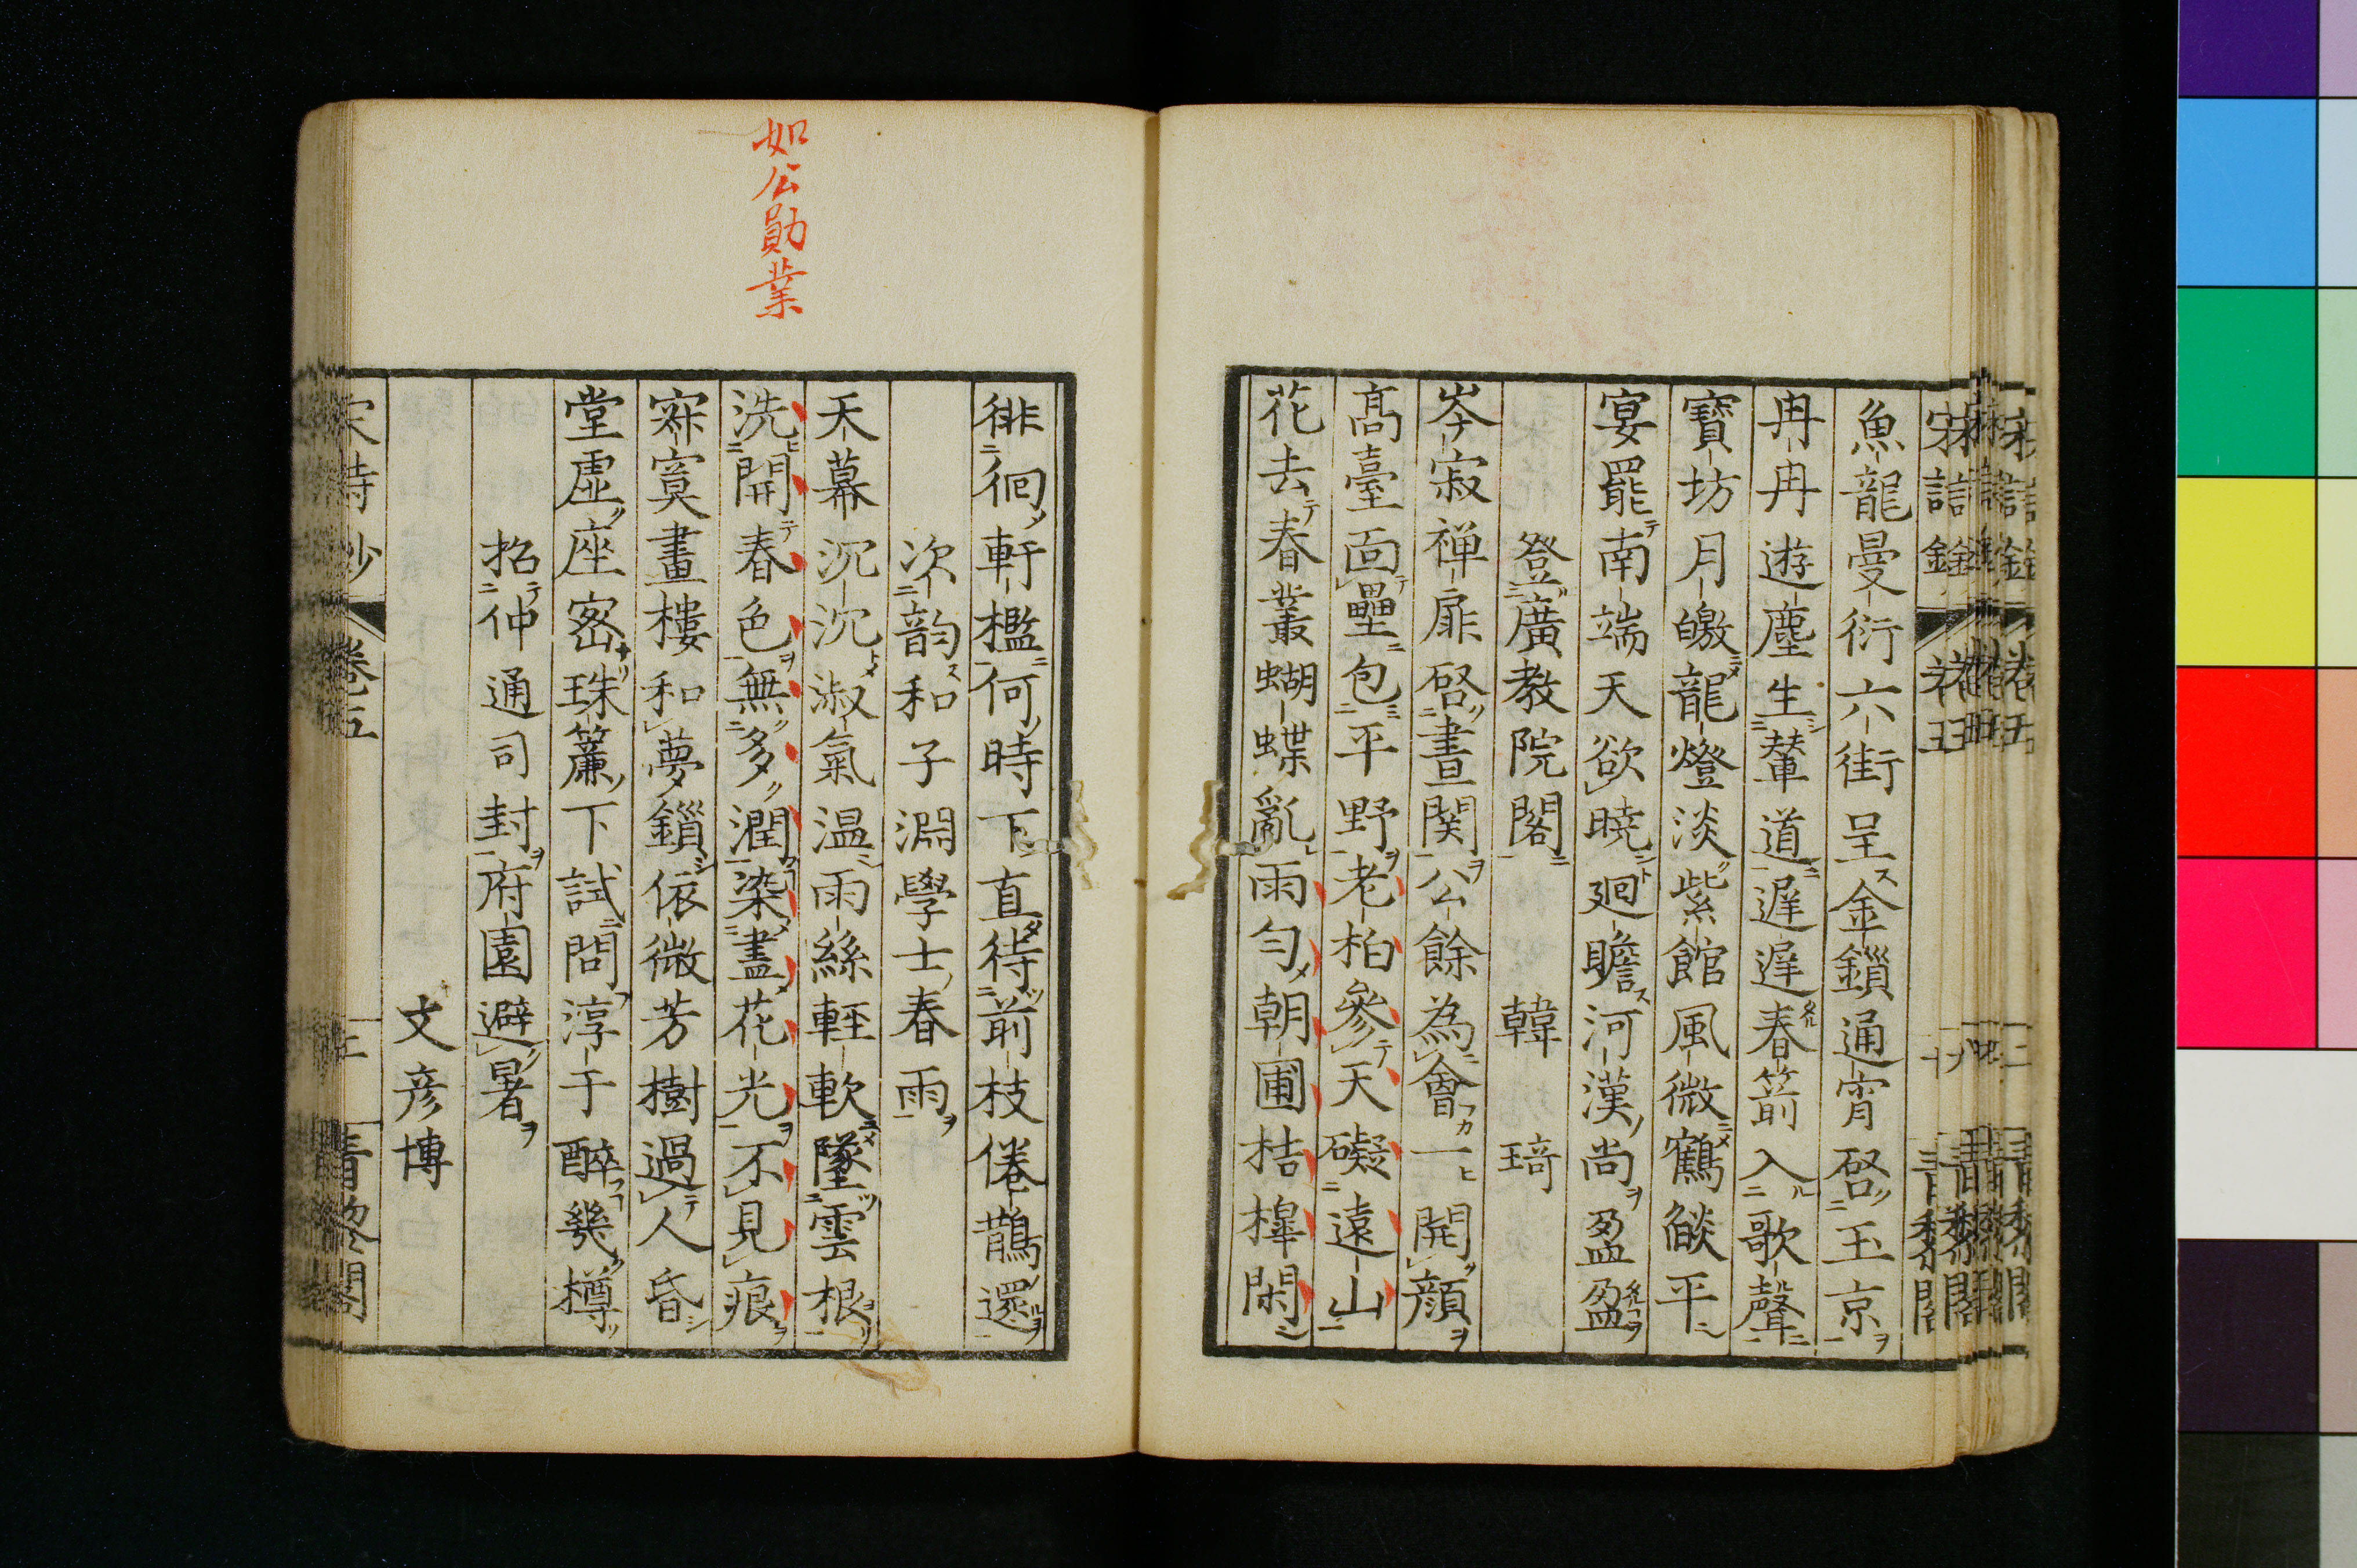 魚龍曼衍六街呈金鎖通宵啓玉京
冉冉遊塵生輦道遲遲春箭入歌聲
寶坊月皦龍燈淡紫館風微鶴燄平
宴罷南端天欲曉廻瞻河漢尚盈盈
登廣教院閣　韓琦
岑寂禅扉啓晝関公餘為會一開顔
髙臺面壘包平野老柏參天礙遠山
花去春叢蝴蝶亂雨勻朝圃桔槹閑
如公勛業
徘徊軒檻何時下直待前枝倦鵲還
次韵和子淵學士春雨
天幕沉沉淑氣温雨絲軽軟墜雲根
洗開春色無多潤染盡花光不見痕
寂寞畫樓和夢鎖依微芳樹過人昏
堂虚座密珠簾下試問淳于醉幾樽
文彦博
招仲通司封府園避暑
宋詩鈔　卷五　青黎閣